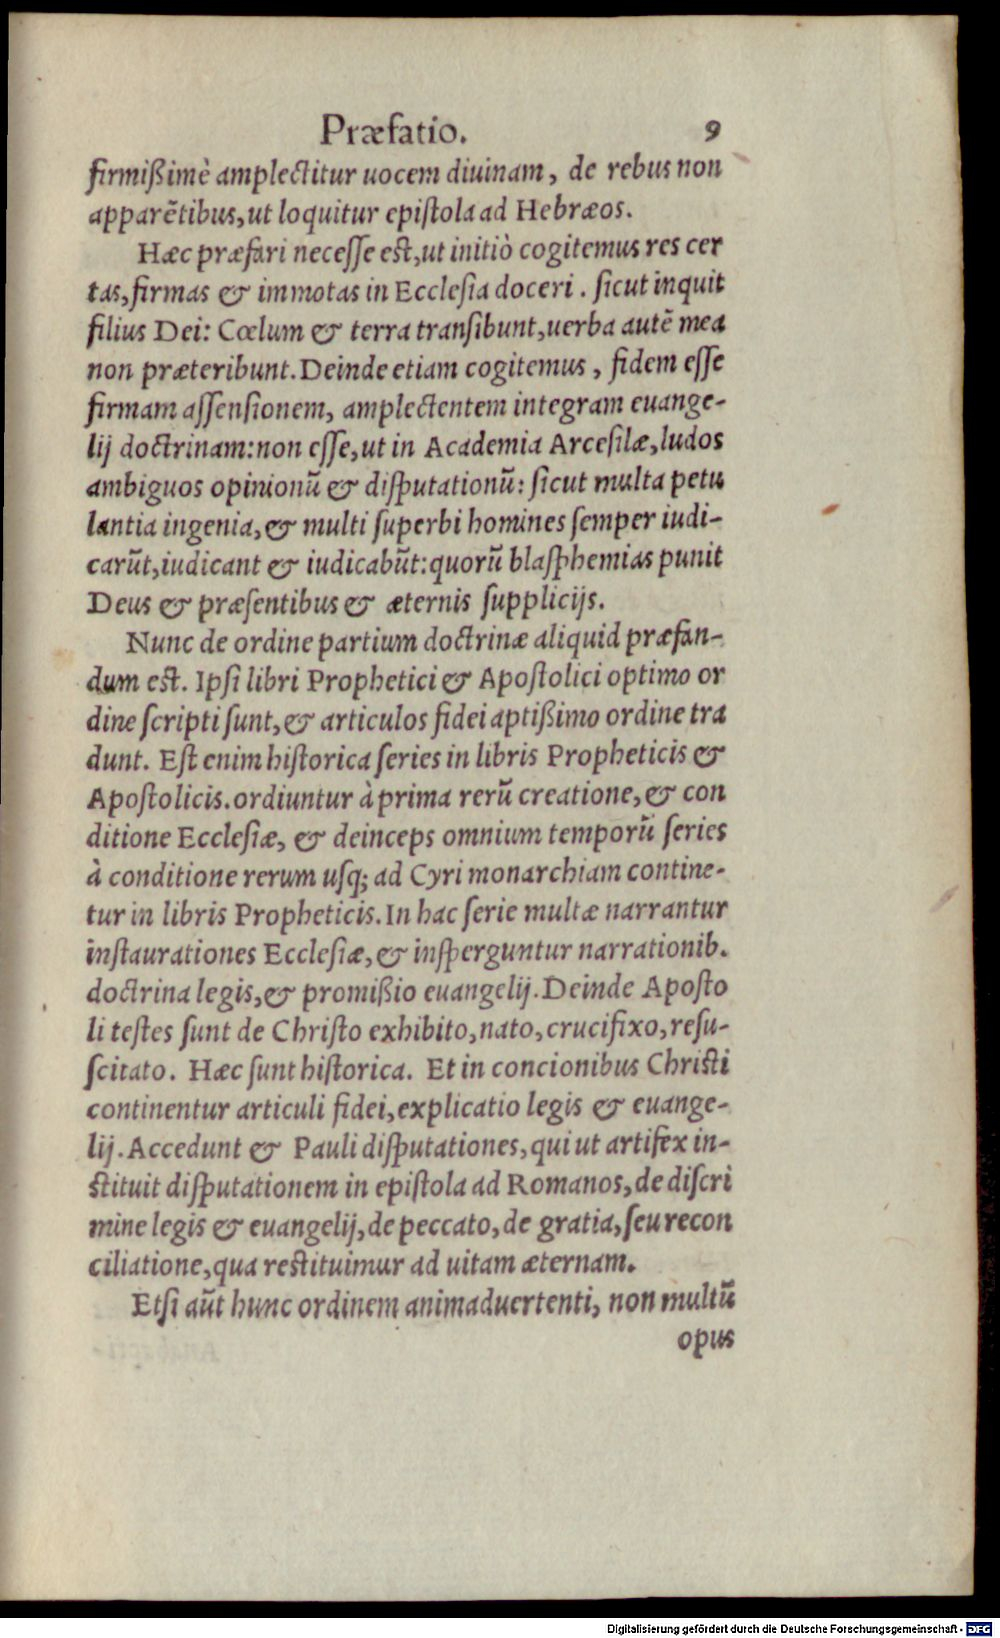 Præfatio. 9
firmißimè amplectitur uocem diuinam, de rebus non
apparẽtibus, ut loquitur epiſtola ad Hebræos.
Hæc præfari neceſſe eſt, ut initiò cogitemus res cer
tas, firmas & immotas in Eccleſia doceri. ſicut inquit
filius Dei: Cœlum & terra tranſibunt, uerba autẽ mea
non præteribunt. Deinde etiam cogitemus, fidem eſſe
firmam aſſenſionem, amplectentem integram euange-
lij doctrinam: non eſſe, ut in Academia Arceſilæ, ludos
ambiguos opinionũ & diſputationũ: ſicut multa petu
lantia ingenia, & multi ſuperbi homines ſemper iudi-
carũt, iudicant & iudicabũt: quorũ blaſphemias punit
Deus & præſentibus & æternis ſupplicijs.
Nunc de ordine partium doctrinæ aliquid præfan-
dum eſt. Ipſi libri Prophetici & Apoſtolici optimo or
dine ſcripti ſunt, & articulos fidei aptißimo ordine tra
dunt. Eſt enim hiſtorica ſeries in libris Propheticis &
Apoſtolicis. ordiuntur à prima rerũ creatione, & con
ditione Eccleſiæ, & deinceps omnium temporũ ſeries
à conditione rerum uſq; ad Cyri monarchiam contine-
tur in libris Propheticis. In hac ſerie multæ narrantur
inſtaurationes Eccleſiæ, & inſperguntur narrationib.
doctrina legis, & promißio euangelij. Deinde Apoſto
li teſtes ſunt de Chriſto exhibito, nato, crucifixo, reſu-
ſcitato. Hæc ſunt hiſtorica. Et in concionibus Chriſti
continentur articuli fidei, explicatio legis & euange-
lij. Accedunt & Pauli diſputationes, qui ut artifex in-
ſtituit diſputationem in epiſtola ad Romanos, de diſcri
mine legis & euangelij, de peccato, de gratia, ſeu recon
ciliatione, qua reſtituimur ad uitam æternam.
Etſi aũt hunc ordinem animaduertenti, non multũ
opus
Digitalisierung gefördert durch die Deutsche Forschungsgemeinschaft - DFG